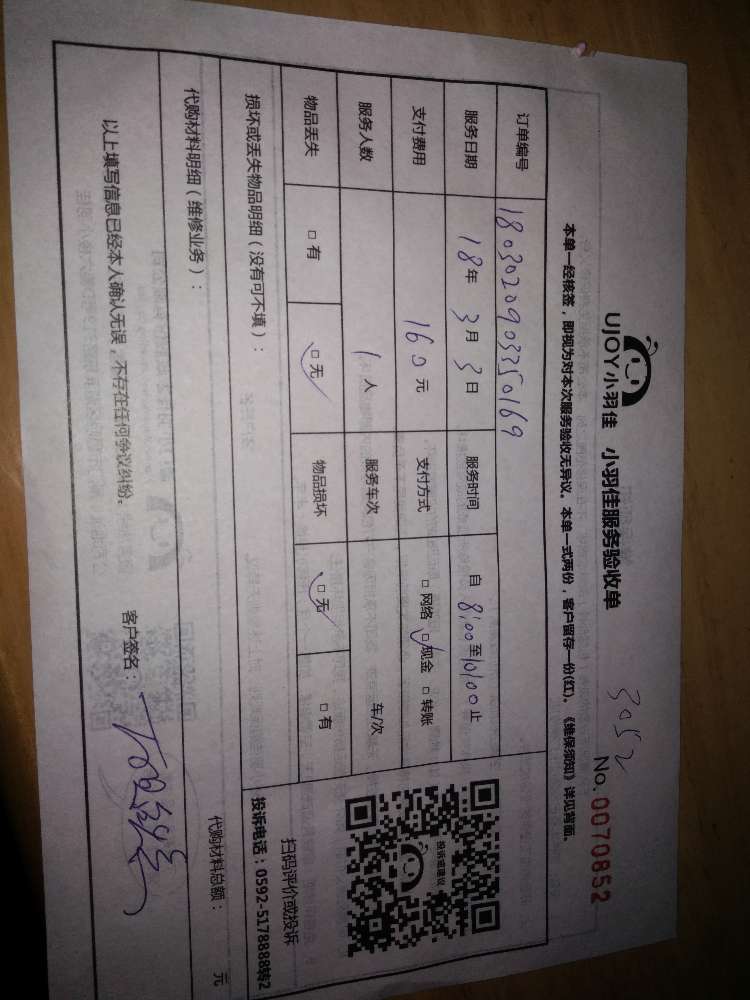 3052
UJOY小羽佳 小羽佳服务验收单 No. 0070852
本单一经核签，即视为对本次服务验收无异议。本单一式两份，客户留存一份(红)。《维保须知》详见背面。
订单编号 1803020903350169
服务日期 18年 3月 3日 服务时间 自 8:00 至 10:00 止
支付费用 160元 支付方式 □网络 □现金 □转账
服务人数 1人 服务车次 车/次
物品丢失 □有 □无 物品损坏 □无 □有
投诉或建议
扫码评价或投诉
投诉电话：0592-5178888转2
损坏或丢失物品明细（没有可不填）：
代购材料明细（维修业务）： 代购材料总额： 元
以上填写信息已经本人确认无误，不存在任何争议纠纷。 客户签名：